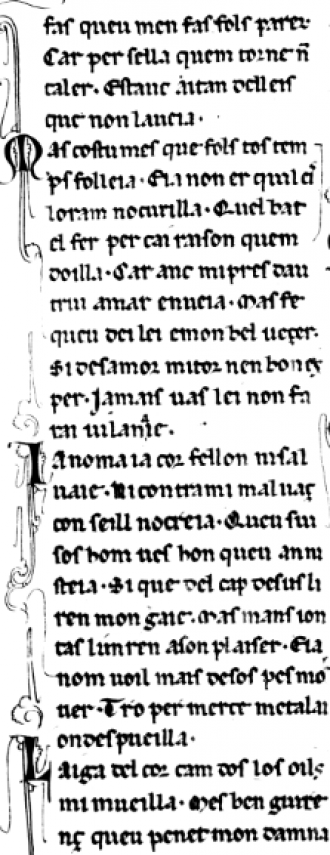 fas queu men fas fols parer
Car per sella quem torne ñ
caler. Estauc aitan delleis
que non laueia.
Mas costumes que fols tostem
ps folleia. Eia non er quil eī
loram nocueilla. Quel bat
el fer per cai raison quem
doilla. Car anc mi pres dau
triu amar enueia. Mas fe
queu dei lei emon bel ueçer.
Si desamor mitor nen bon eç
per. Jamais uas lei non fa
rai uilanie.
Ia noma ia cor fellon nisal
uaie. Ni contra mi maluaç
con seill nocreia. Queu sui
sos hom lies hon queu ami
steia. Si que del cap desus li
ren mon gaie. Mas mans ion
tas lim ren ason plaiser. Eia
nom uoil mais desos pes mo
uer. Tro per merce metalai
on despueilla.
Laiga del cor cam dos los oils
mi mueilla. Mes ben guire
nç queu penet mon damna